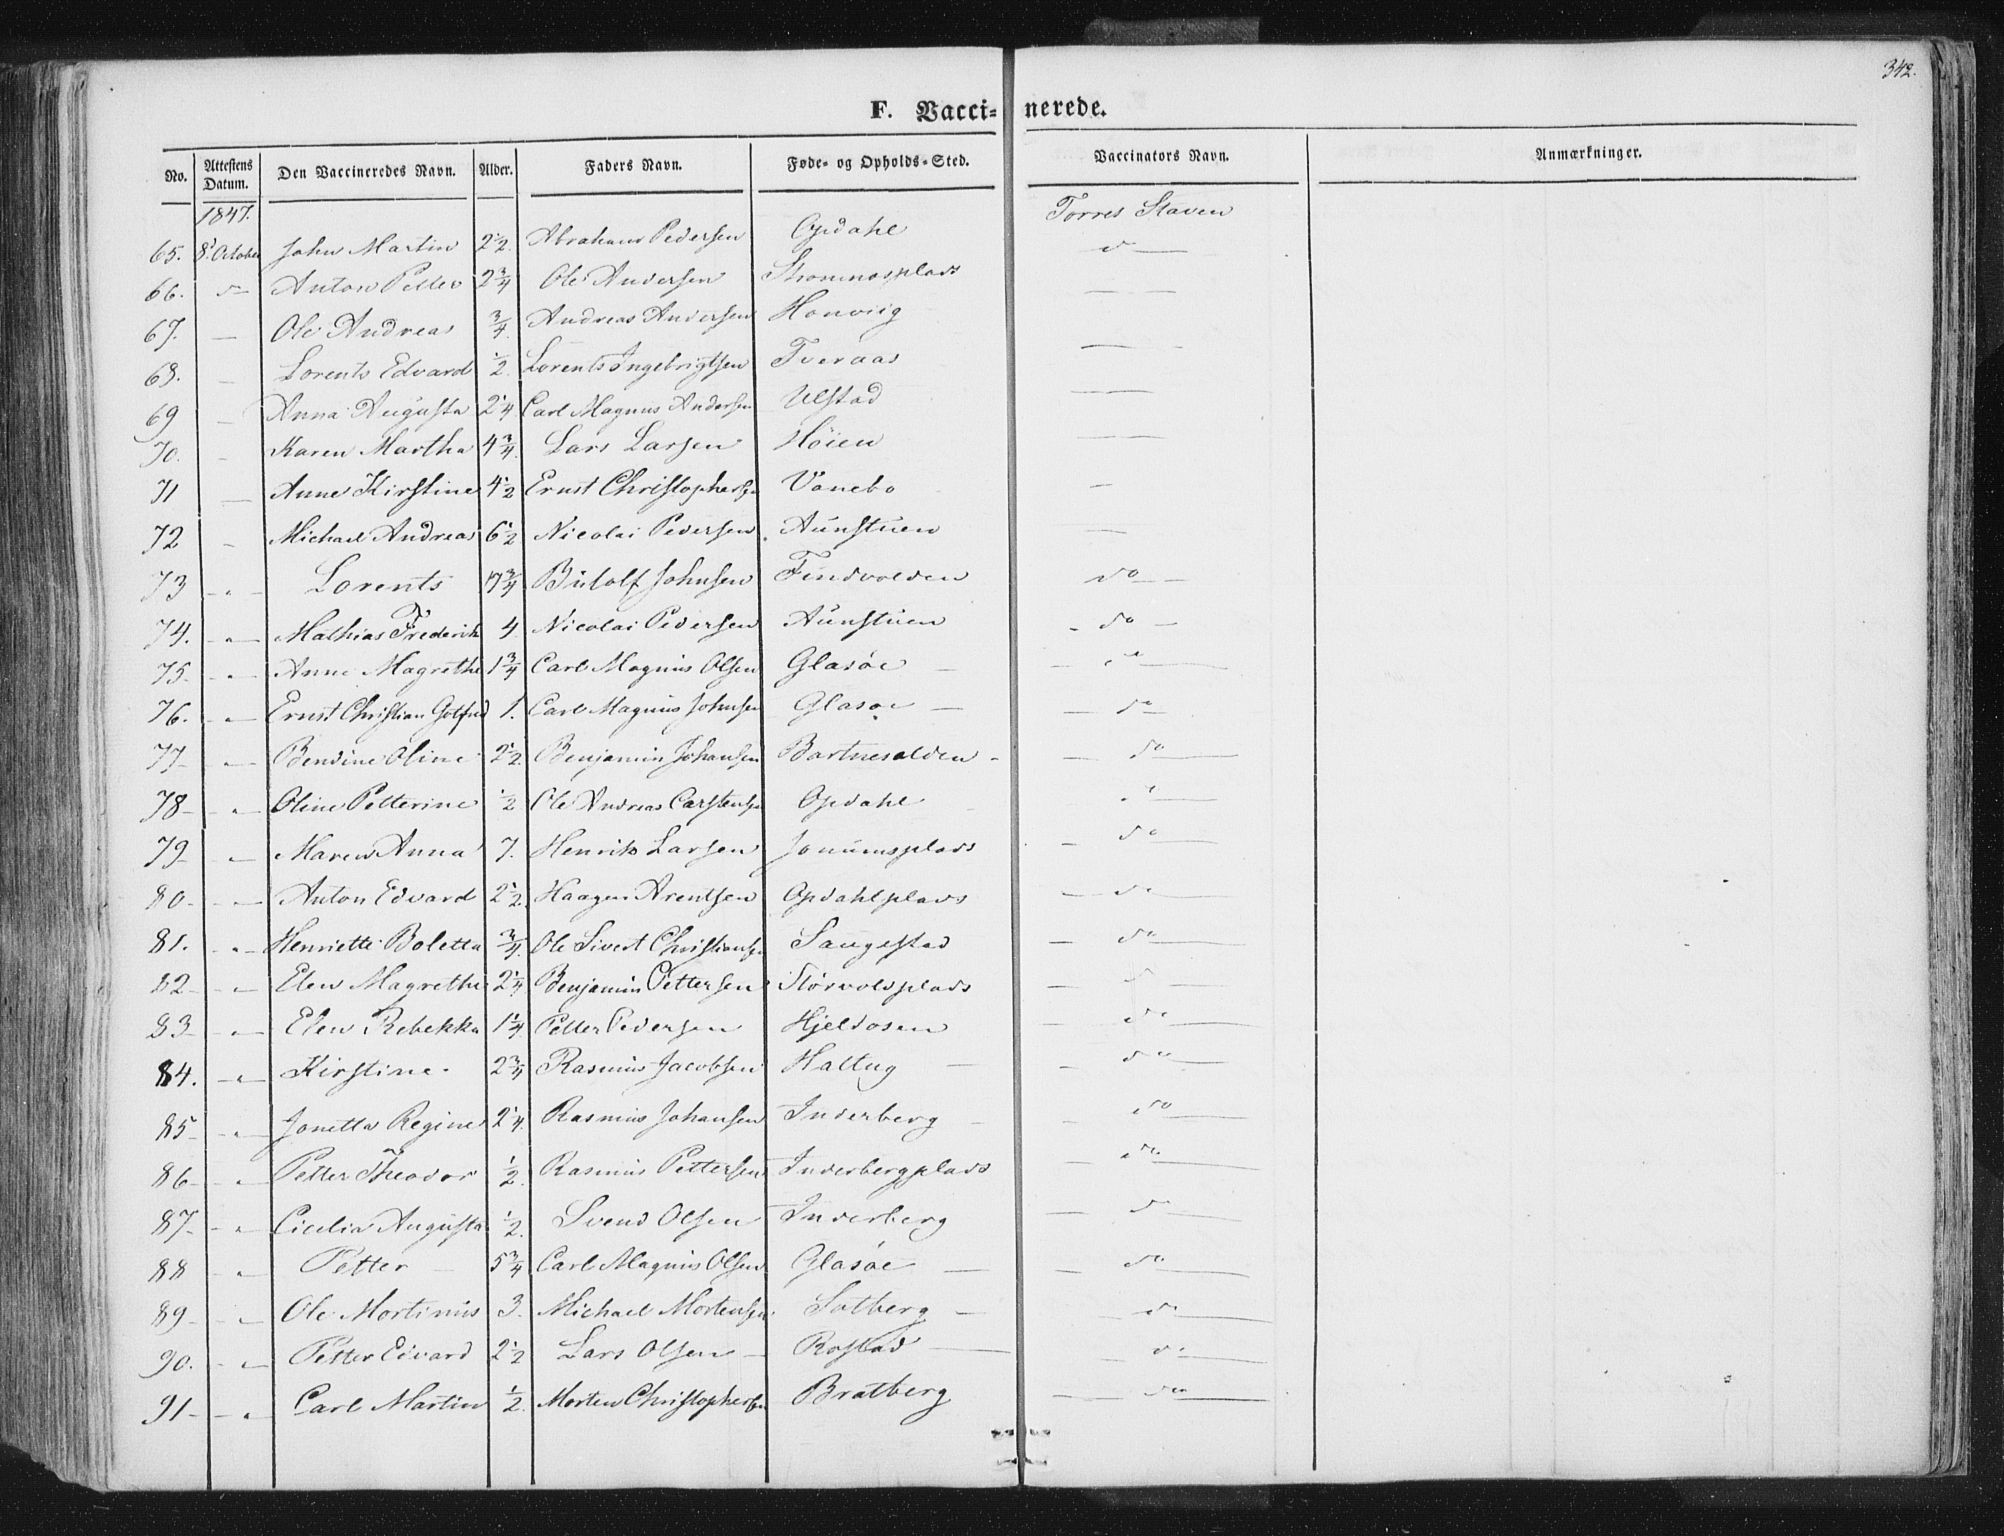 342.
F. Vaccinerede.
No. Attestens Datum. Den Vaccineredes Navn. Alder. Faders Navn. Føde- og Opholds-Sted. Vaccinators Navn. Anmærkninger.
1847.
65. 8' October John Martin 2 1/2. Abraham Pedersen Opdahl Torres Staven
66. do Anton Petter 2 3/4 Ole Andersen Strømnesplads do —
67. — Ole Andreas 3/4. Andreas Andersen Honviig — —
68. — Lorents Edvard 1/2. Lorents Ingebrigtsen Tveraas — —
69 — Anna Augusta 2 1/4. Carl Magnus Andersen Ulstad — —
70. — Karen Martha 4 3/4. Lars Larsen Høien — —
71 — Anne Kirstine 4 1/2 Ernst Christophersen Vanebo —
72 — Michael Andreas 6 1/2 Nicolai Pedersen. Aunstuen —
73 — " — Lorents 7 3/4 Butolf Johnsen Findvolden do —
74. — " — Mathias Frederik 4 Nicolai Pedersen Aunstuen - do —
75- — " — Anne Magrethe 1 3/4 Carl Magnus Olsen Glasøe — — do —
76. — " — Ernst Christian Gotfred 1. Carl Magnus Johnsen Glasøe — — do —
77- — " — Bendine Oline 2 1/2. Benjamin Johansen Bartnesalden - — do —
78- — " — Oline Petterine 1/2 Ole Andreas Carstensen Opdahl — do —
79- — " — Maren Anna 7. Henrik Larsen Jonumsplads — do —
80- — " — Anton Edvard 2 1/2. Haagen Arentsen Opdahlplads — do —
81. — " — Henriette Boletta 3/4. Ole Sivert Christiansen Saugestad — do —
82- — " — Elen Magrethe 2 1/4. Benjamin Pettersen Størvolsplads — do —
83- — " — Elen Rebekka 1 1/4 Petter Pedersen Hjeldosen — do —
84. — " — Kirstine. 2 3/4 Rasmus Jacobsen Haltug — — do —
85- — " — Jonetta Regine 2 1/4. Rasmus Johansen Inderberg — - do —
86- — " — Petter Theodor 1/2. Rasmus Pettersen Inderbergplads — do —
87- — " — Cicelia Augusta 1/2. Svend Olsen Inderberg — do —
88 — " — Petter — 5 3/4 Carl Magnus Olsen Glasøe — — do —
89- — " — Ole Mortinus 3. Michael Mortensen Salberg — — do —
90. — " — Petter Edvard 2 1/2 Lars Olsen — Rostad — — do —
91- — " — Carl Martin 1/2. Morten Christophersen Bratberg — do —